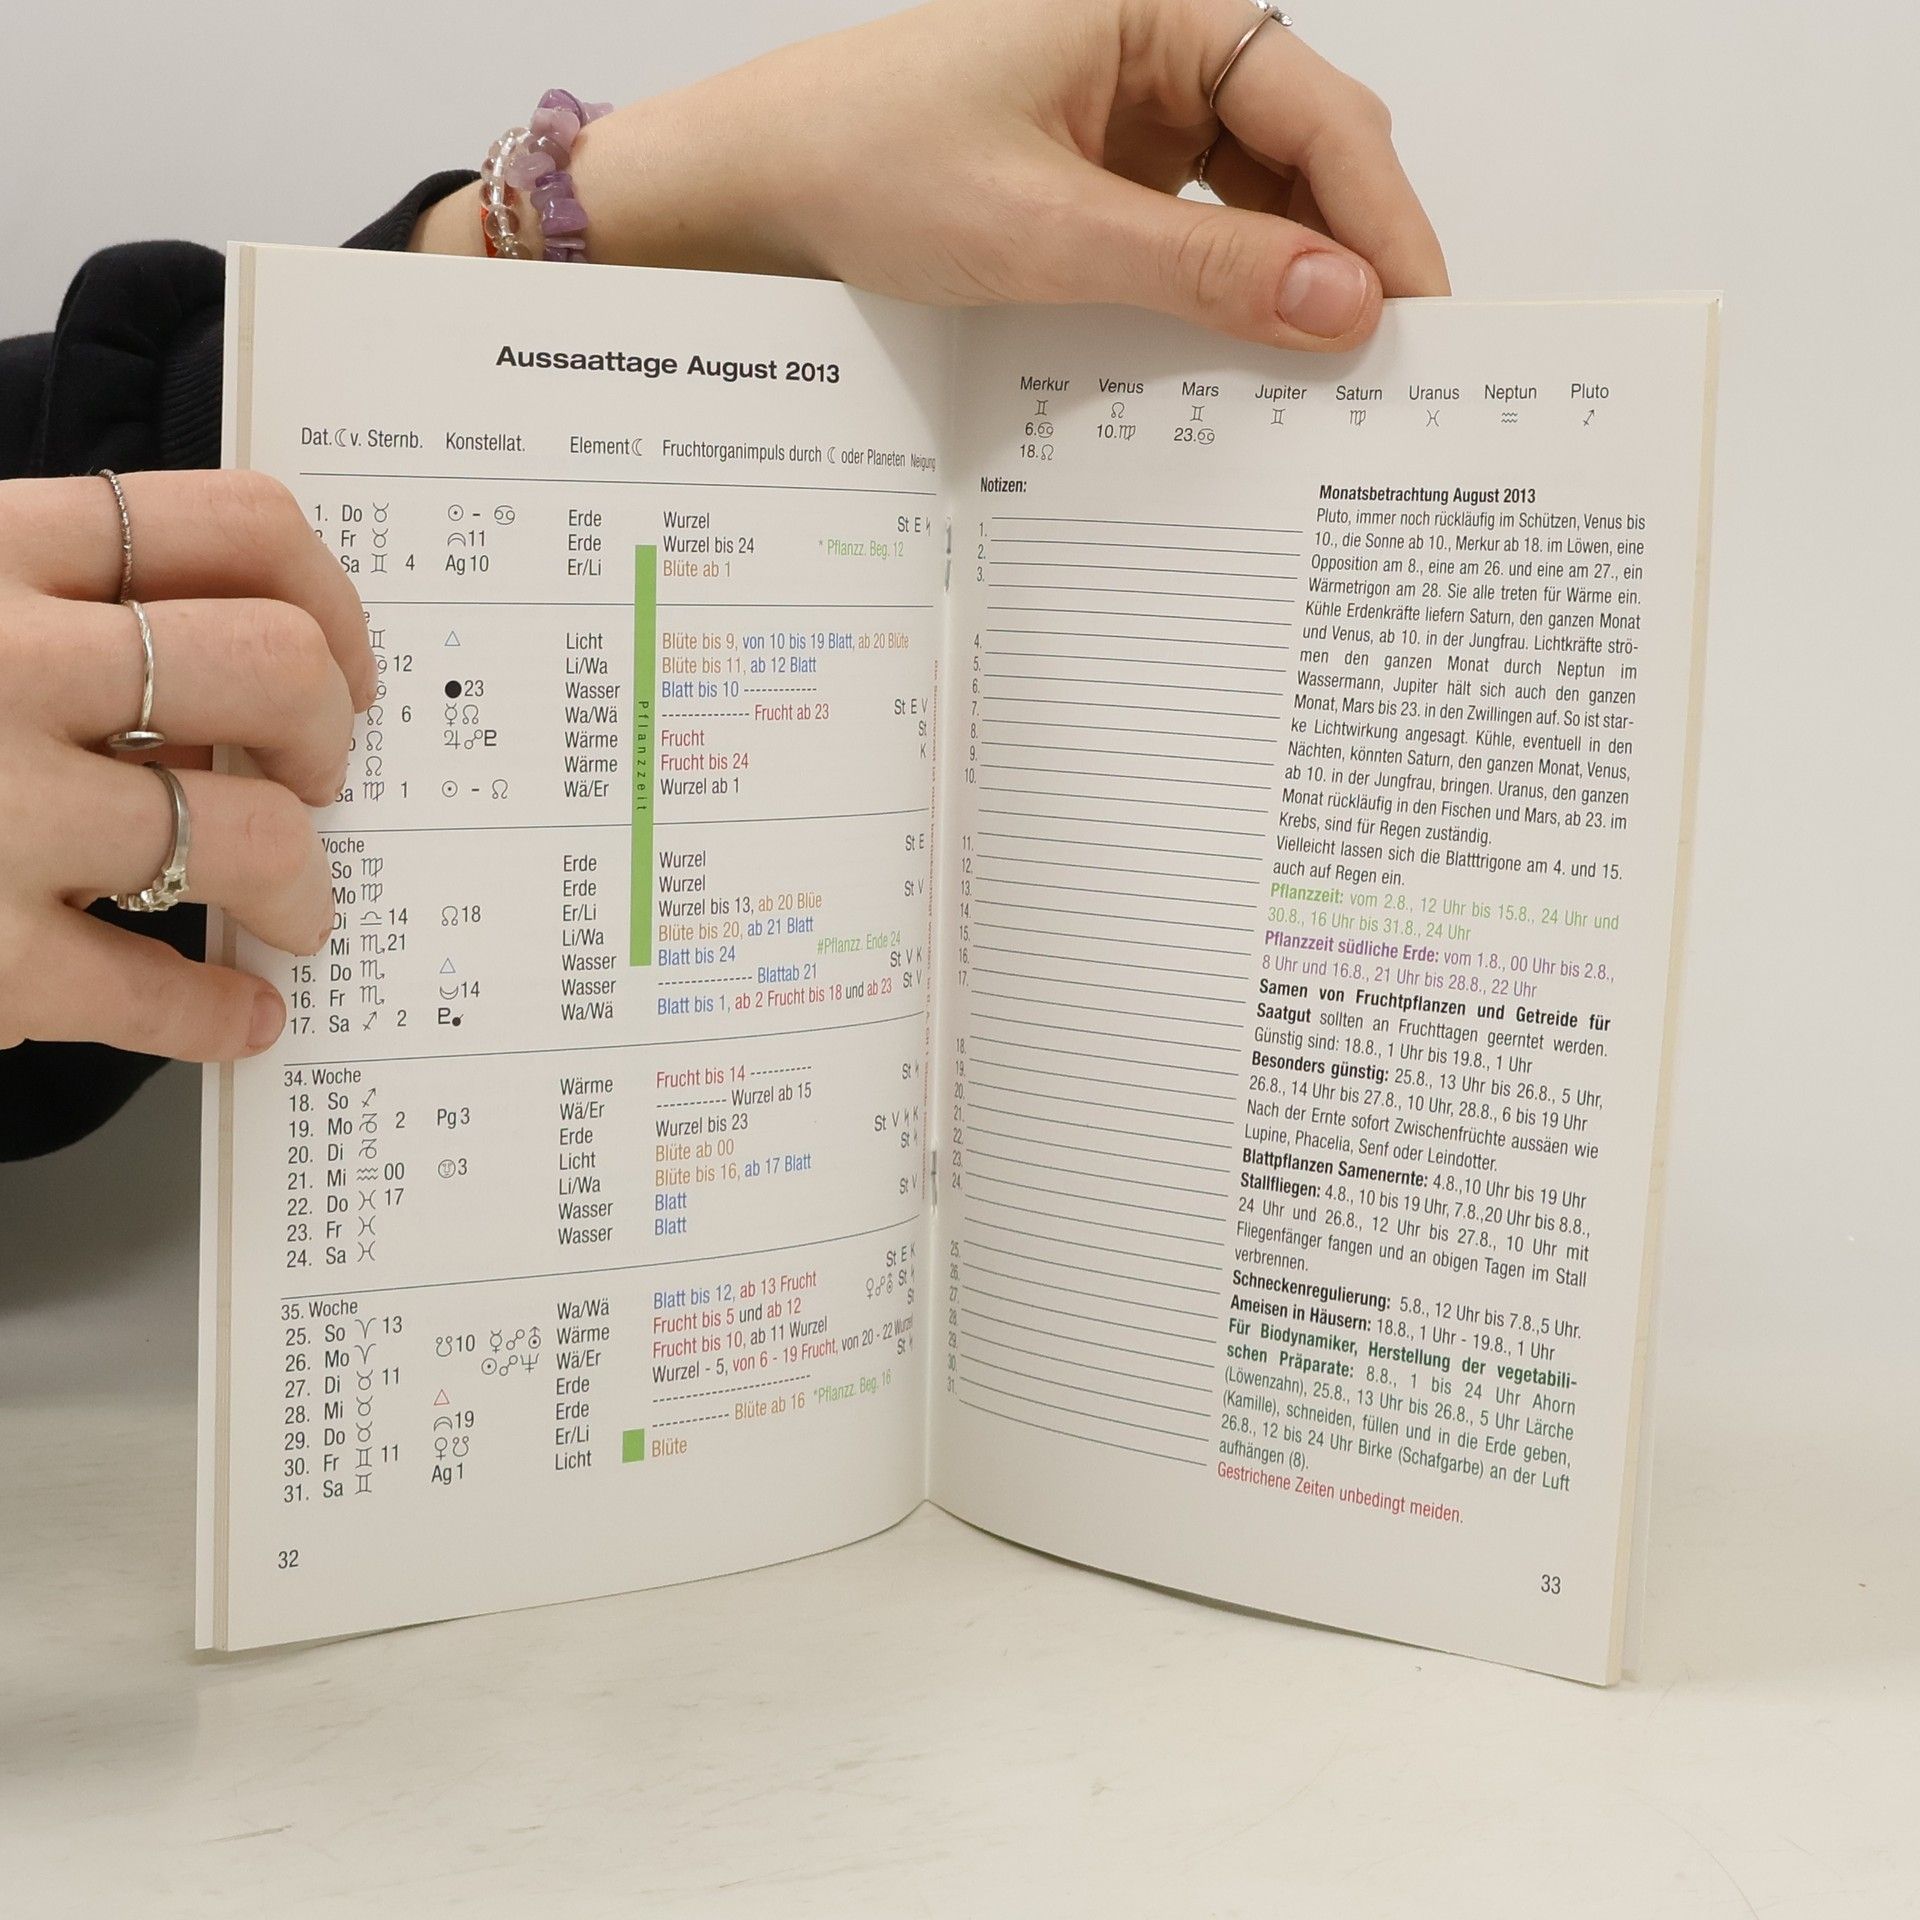 Aussaattage August 2013
Dat.☾v. Sternb. Konstellat. Element☾ Fruchtorganimpuls durch ☾ oder Planeten Neigung
1. Do ♉ ☉ - ♋ Erde Wurzel St E
Fr ♉ 11 Erde Wurzel bis 24 * Pflanzz. Beg. 12
Sa ♊ 4 Ag 10 Er/Li Blüte ab 1
♊ △ Licht Blüte bis 9, von 10 bis 19 Blatt, ab 20 Blüte
♋ 12 Li/Wa Blüte bis 11, ab 12 Blatt
♋ ●23 Wasser Blatt bis 10 -------------
♌ 6 ☿☊ Wa/Wä -------------- Frucht ab 23 St E V
♌ ♃☍♇ Wärme Frucht St
♌ Wärme Frucht bis 24 K
Sa ♍ 1 ☉ - ♌ Wä/Er Wurzel ab 1
Pflanzzeit
Woche
So ♍ Erde Wurzel St E
Mo ♍ Erde Wurzel
Di ♎ 14 ☊18 Er/Li Wurzel bis 13, ab 20 Blüe St V
Mi ♏ 21 Li/Wa Blüte bis 20, ab 21 Blatt
15. Do ♏ △ Wasser Blatt bis 24 #Pflanzz. Ende 24
16. Fr ♏ 14 Wasser -------------- Blattab 21 St V K
17. Sa ♐ 2 Wa/Wä Blatt bis 1, ab 2 Frucht bis 18 und ab 23 St V
34. Woche
18. So ♐ Wärme Frucht bis 14 ---------- St
19. Mo ♑ 2 Pg 3 Wä/Er ----------- Wurzel ab 15
20. Di ♑ Erde Wurzel bis 23 St V K
21. Mi ♒ 00 3 Licht Blüte ab 00 St
22. Do ♓ 17 Li/Wa Blüte bis 16, ab 17 Blatt
23. Fr ♓ Wasser Blatt St V
24. Sa ♓ Wasser Blatt
35. Woche
25. So ♈ 13 Wa/Wä Blatt bis 12, ab 13 Frucht St E K
26. Mo ♈ ☋10 ☿☍⛢ Wärme Frucht bis 5 und ab 12 ♀☍⛢ St
27. Di ♉ 11 ☉☍♆ Wä/Er Frucht bis 10, ab 11 Wurzel St
28. Mi ♉ △ Erde Wurzel - 5, von 6 - 19 Frucht, von 20 - 22 Wurzel
29. Do ♉ 19 Erde ---------------------- St
30. Fr ♊ 11 ♀☋ Er/Li ----------- Blüte ab 16 *Pflanzz. Beg. 16
31. Sa ♊ Ag 1 Licht Blüte
32
Merkur Venus Mars Jupiter Saturn Uranus Neptun Pluto
♊ ♌ ♊ ♊ ♍ ♓ ♒ ♐
6.♋ 10.♍ 23.♋
18.♌
Notizen:
1.
2.
3.
4.
5.
6.
7.
8.
9.
10.
11.
12.
13.
14.
15.
16.
17.
18.
19.
20.
21.
22.
23.
24.
25.
26.
27.
28.
29.
30.
31.
Monatsbetrachtung August 2013
Pluto, immer noch rückläufig im Schützen, Venus bis
10., die Sonne ab 10., Merkur ab 18. im Löwen, eine
Opposition am 8., eine am 26. und eine am 27., ein
Wärmetrigon am 28. Sie alle treten für Wärme ein.
Kühle Erdenkräfte liefern Saturn, den ganzen Monat
und Venus, ab 10. in der Jungfrau. Lichtkräfte strö-
men den ganzen Monat durch Neptun im
Wassermann, Jupiter hält sich auch den ganzen
Monat, Mars bis 23. in den Zwillingen auf. So ist star-
ke Lichtwirkung angesagt. Kühle, eventuell in den
Nächten, könnten Saturn, den ganzen Monat, Venus,
ab 10. in der Jungfrau, bringen. Uranus, den ganzen
Monat rückläufig in den Fischen und Mars, ab 23. im
Krebs, sind für Regen zuständig.
Vielleicht lassen sich die Blatttrigone am 4. und 15.
auch auf Regen ein.
Pflanzzeit: vom 2.8., 12 Uhr bis 15.8., 24 Uhr und
30.8., 16 Uhr bis 31.8., 24 Uhr
Pflanzzeit südliche Erde: vom 1.8., 00 Uhr bis 2.8.,
8 Uhr und 16.8., 21 Uhr bis 28.8., 22 Uhr
Samen von Fruchtpflanzen und Getreide für
Saatgut sollten an Fruchttagen geerntet werden.
Günstig sind: 18.8., 1 Uhr bis 19.8., 1 Uhr
Besonders günstig: 25.8., 13 Uhr bis 26.8., 5 Uhr,
26.8., 14 Uhr bis 27.8., 10 Uhr, 28.8., 6 bis 19 Uhr
Nach der Ernte sofort Zwischenfrüchte aussäen wie
Lupine, Phacelia, Senf oder Leindotter.
Blattpflanzen Samenernte: 4.8.,10 Uhr bis 19 Uhr
Stallfliegen: 4.8., 10 bis 19 Uhr, 7.8.,20 Uhr bis 8.8.,
24 Uhr und 26.8., 12 Uhr bis 27.8., 10 Uhr mit
Fliegenfänger fangen und an obigen Tagen im Stall
verbrennen.
Schneckenregulierung: 5.8., 12 Uhr bis 7.8.,5 Uhr.
Ameisen in Häusern: 18.8., 1 Uhr - 19.8., 1 Uhr
Für Biodynamiker, Herstellung der vegetabili-
schen Präparate: 8.8., 1 bis 24 Uhr Ahorn
(Löwenzahn), 25.8., 13 Uhr bis 26.8., 5 Uhr Lärche
(Kamille), schneiden, füllen und in die Erde geben,
26.8., 12 bis 24 Uhr Birke (Schafgarbe) an der Luft
aufhängen (8).
Gestrichene Zeiten unbedingt meiden.
33